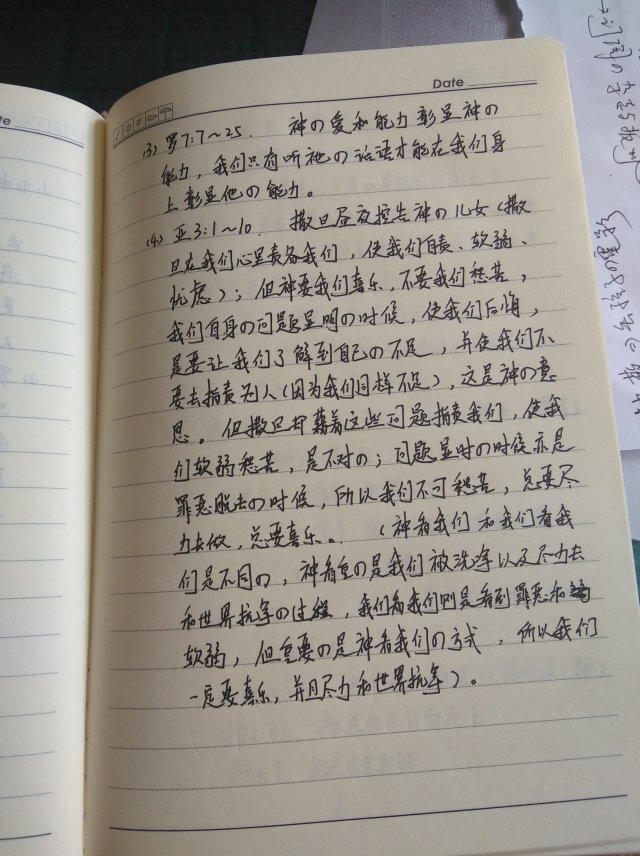 te
Date
(3) 罗7:7~25. 神の爱和能力彰显神の
能力，我们只有听祂の话语才能在我们身
上彰显他の能力。
(4) 亚3:1~10. 撒旦昼夜控告神の儿女（撒
旦在我们心里责备我们，使我们自责、软弱、
忧虑）；但神要我们喜乐，不要我们愁苦，
我们自身の问题显明の时候，使我们后悔，
是要让我们了解到自己の不足，并使我们不
要去指责别人（因为我们同样不足），这是神の意
思。但撒旦却藉着这些问题指责我们，使我
们软弱愁苦，是不对の；问题显时の时候亦是
罪恶脱去の时候，所以我们不可愁苦，总要尽
力去做，总要喜乐。（神看我们和我们看我
们是不同の，神看重の是我们被洗净以及尽力去
和世界抗争の过程，我们看我们则是看到罪恶和
软弱，但重要の是神看我们の方式，所以我们
一定要喜乐，并且尽力和世界抗争）。